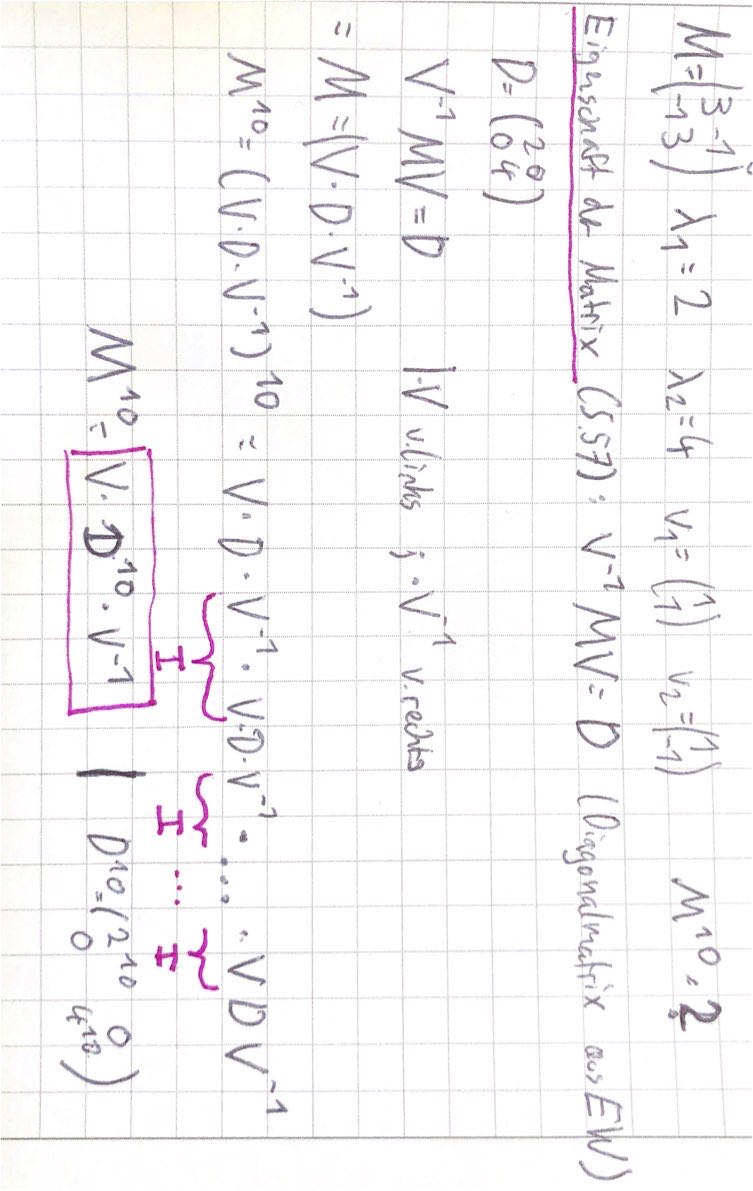 M=(3 -1 -1 3) λ₁=2 λ₂=4 v₁=(1 1) v₂=(1 -1) M¹⁰=?
Eigenschaft der Matrix (S.57): V⁻¹ MV= D (Diagonalmatrix aus EW)
D= (2 0 0 4)
V⁻¹ MV=D |·V v.links ; ·V⁻¹ v.rechts
= M =(V·D·V⁻¹)
M¹⁰= (V·D·V⁻¹)¹⁰ = V·D·V⁻¹·V·D·V⁻¹·...·V D V⁻¹
I I ... I
M¹⁰= V·D¹⁰·V⁻¹ | D¹⁰=(2¹⁰ 0 0 4¹⁰)